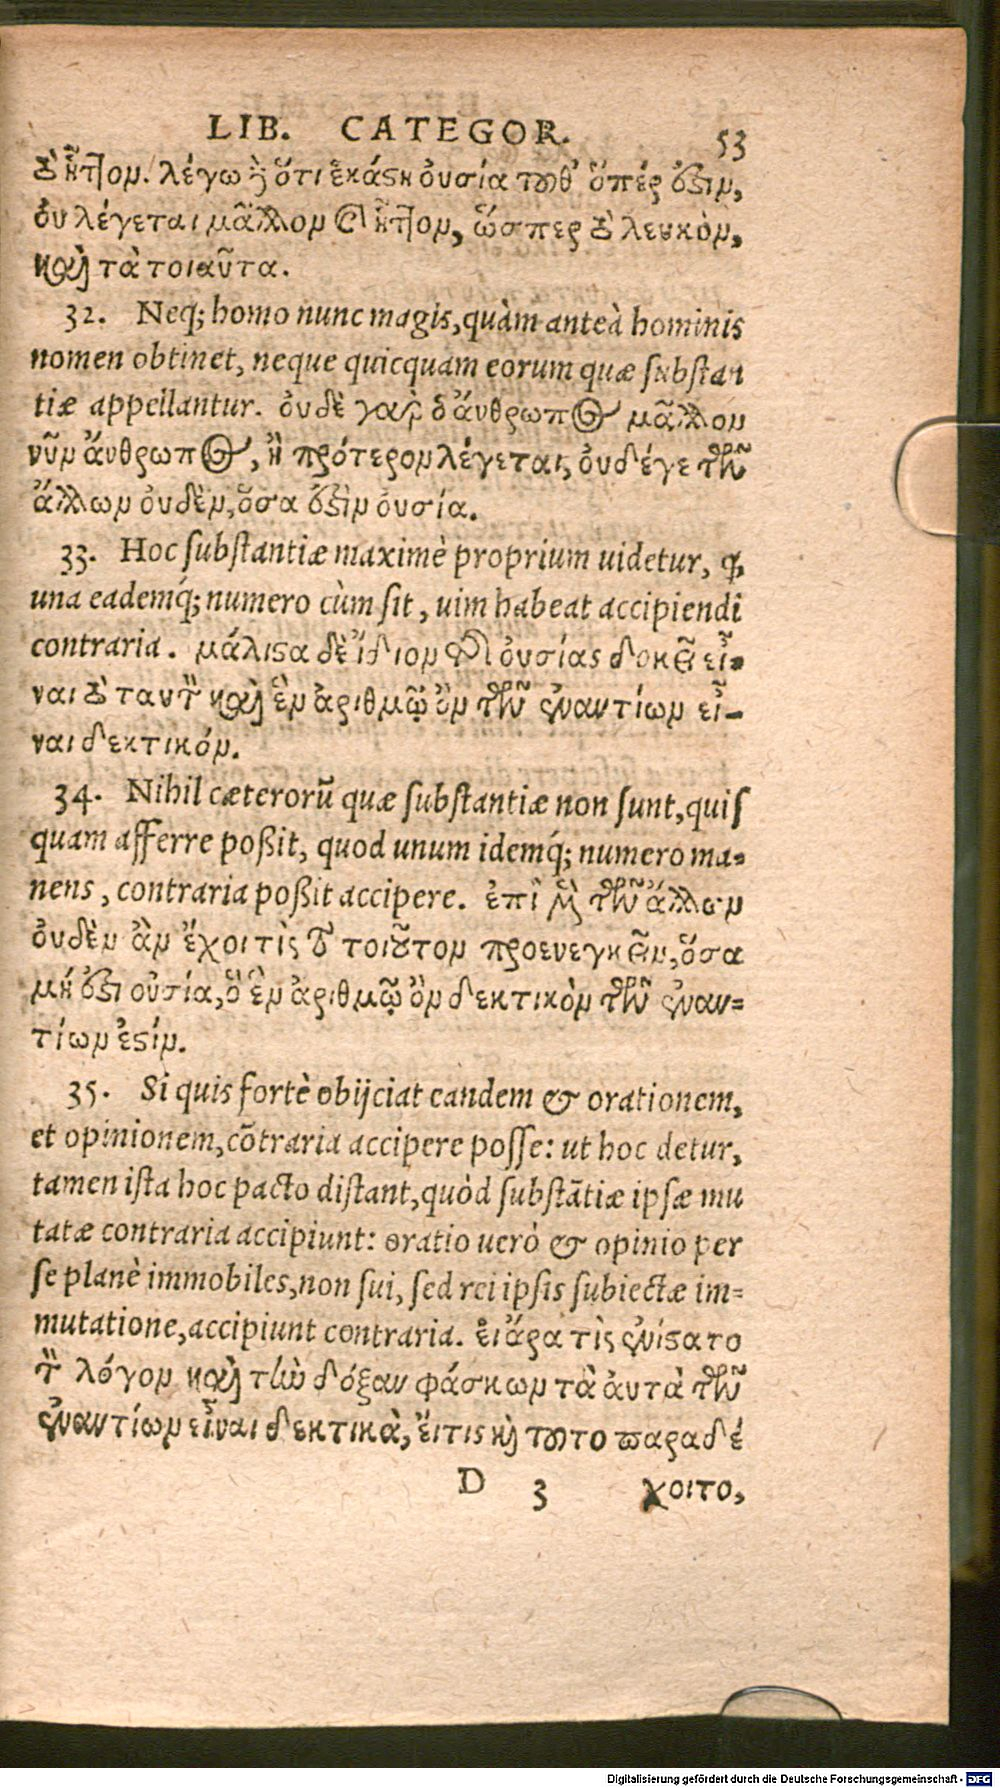 LIB. CATEGOR. 53
καὶ ἧττον. λέγω δὲ ὅτι ἑκάστη οὐσία τοῦθ' ὅπερ ἐστιν,
ου λέγεται μᾶλλον καὶ ἧττον, ὥσπερ καὶ λευκὸν,
καὶ τὰ τοιαῦτα.
32. Neq; homo nunc magis, quàm anteà hominis
nomen obtinet, neque quicquam eorum quæ substan
tiæ appellantur. ὀυδὲ γαρ ὁ ἄνθρωπος μᾶλλον
νῦν ἄνθρωπος, ἢ πρότερον λέγεται, ὀυδέγε τῶν
ἄλλων ὀυδὲν, ὅσα ἐστὶν ὀυσία.
33. Hoc substantiæ maximè proprium uidetur, ꝙ,
una eademq́; numero cùm sit, uim habeat accipiendi
contraria. μάλιστα δὲ ἴδιον τῆς ὀυσίας δοκεῖ εἶ-
ναι τὸ ταυτὸν καὶ ἓν ἀριθμῷ ὂν τῶν ἐναντίων εἶ-
ναι δεκτικόν.
34. Nihil cæterorũ quæ substantiæ non sunt, quis
quam afferre poßit, quod unum idemq́; numero ma-
nens, contraria poßit accipere. ἐπὶ μὲν τῶν ἄλλων
ὀυδὲν ἂν ἔχοι τὶς τὸ τοιοῦτον προενεγκεῖν, ὅσα
μή ἐστι οὐσία, ὃ ἓν ἀριθμῷ ὂν δεκτικὸν τῶν ἐναν-
τίων ἐστίν.
35. Si quis fortè obijciat eandem & orationem,
et opinionem, cõtraria accipere posse: ut hoc detur,
tamen ista hoc pacto distant, quòd substãtiæ ipsæ mu
tatæ contraria accipiunt: oratio uerò & opinio per
se planè immobiles, non sui, sed rei ipsis subiectæ im-
mutatione, accipiunt contraria. ἐι ἄρα τὶς ἐνίστατο
τὸν λόγον καὶ τὴν δόξαν φάσκων τὰ ἀυτὰ τῶν
ἐναντίων εἶναι δεκτικὰ, ἔιτις καὶ τοῦτο παραδέ
D 3 χοιτο,
Digitalisierung gefördert durch die Deutsche Forschungsgemeinschaft - DFG